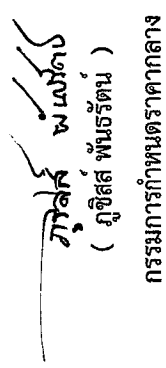 ภูชิสส์ พันธรัตน์
( ภูชิสส์ พันธรัตน์ )
กรรมการกำหนดราคากลาง